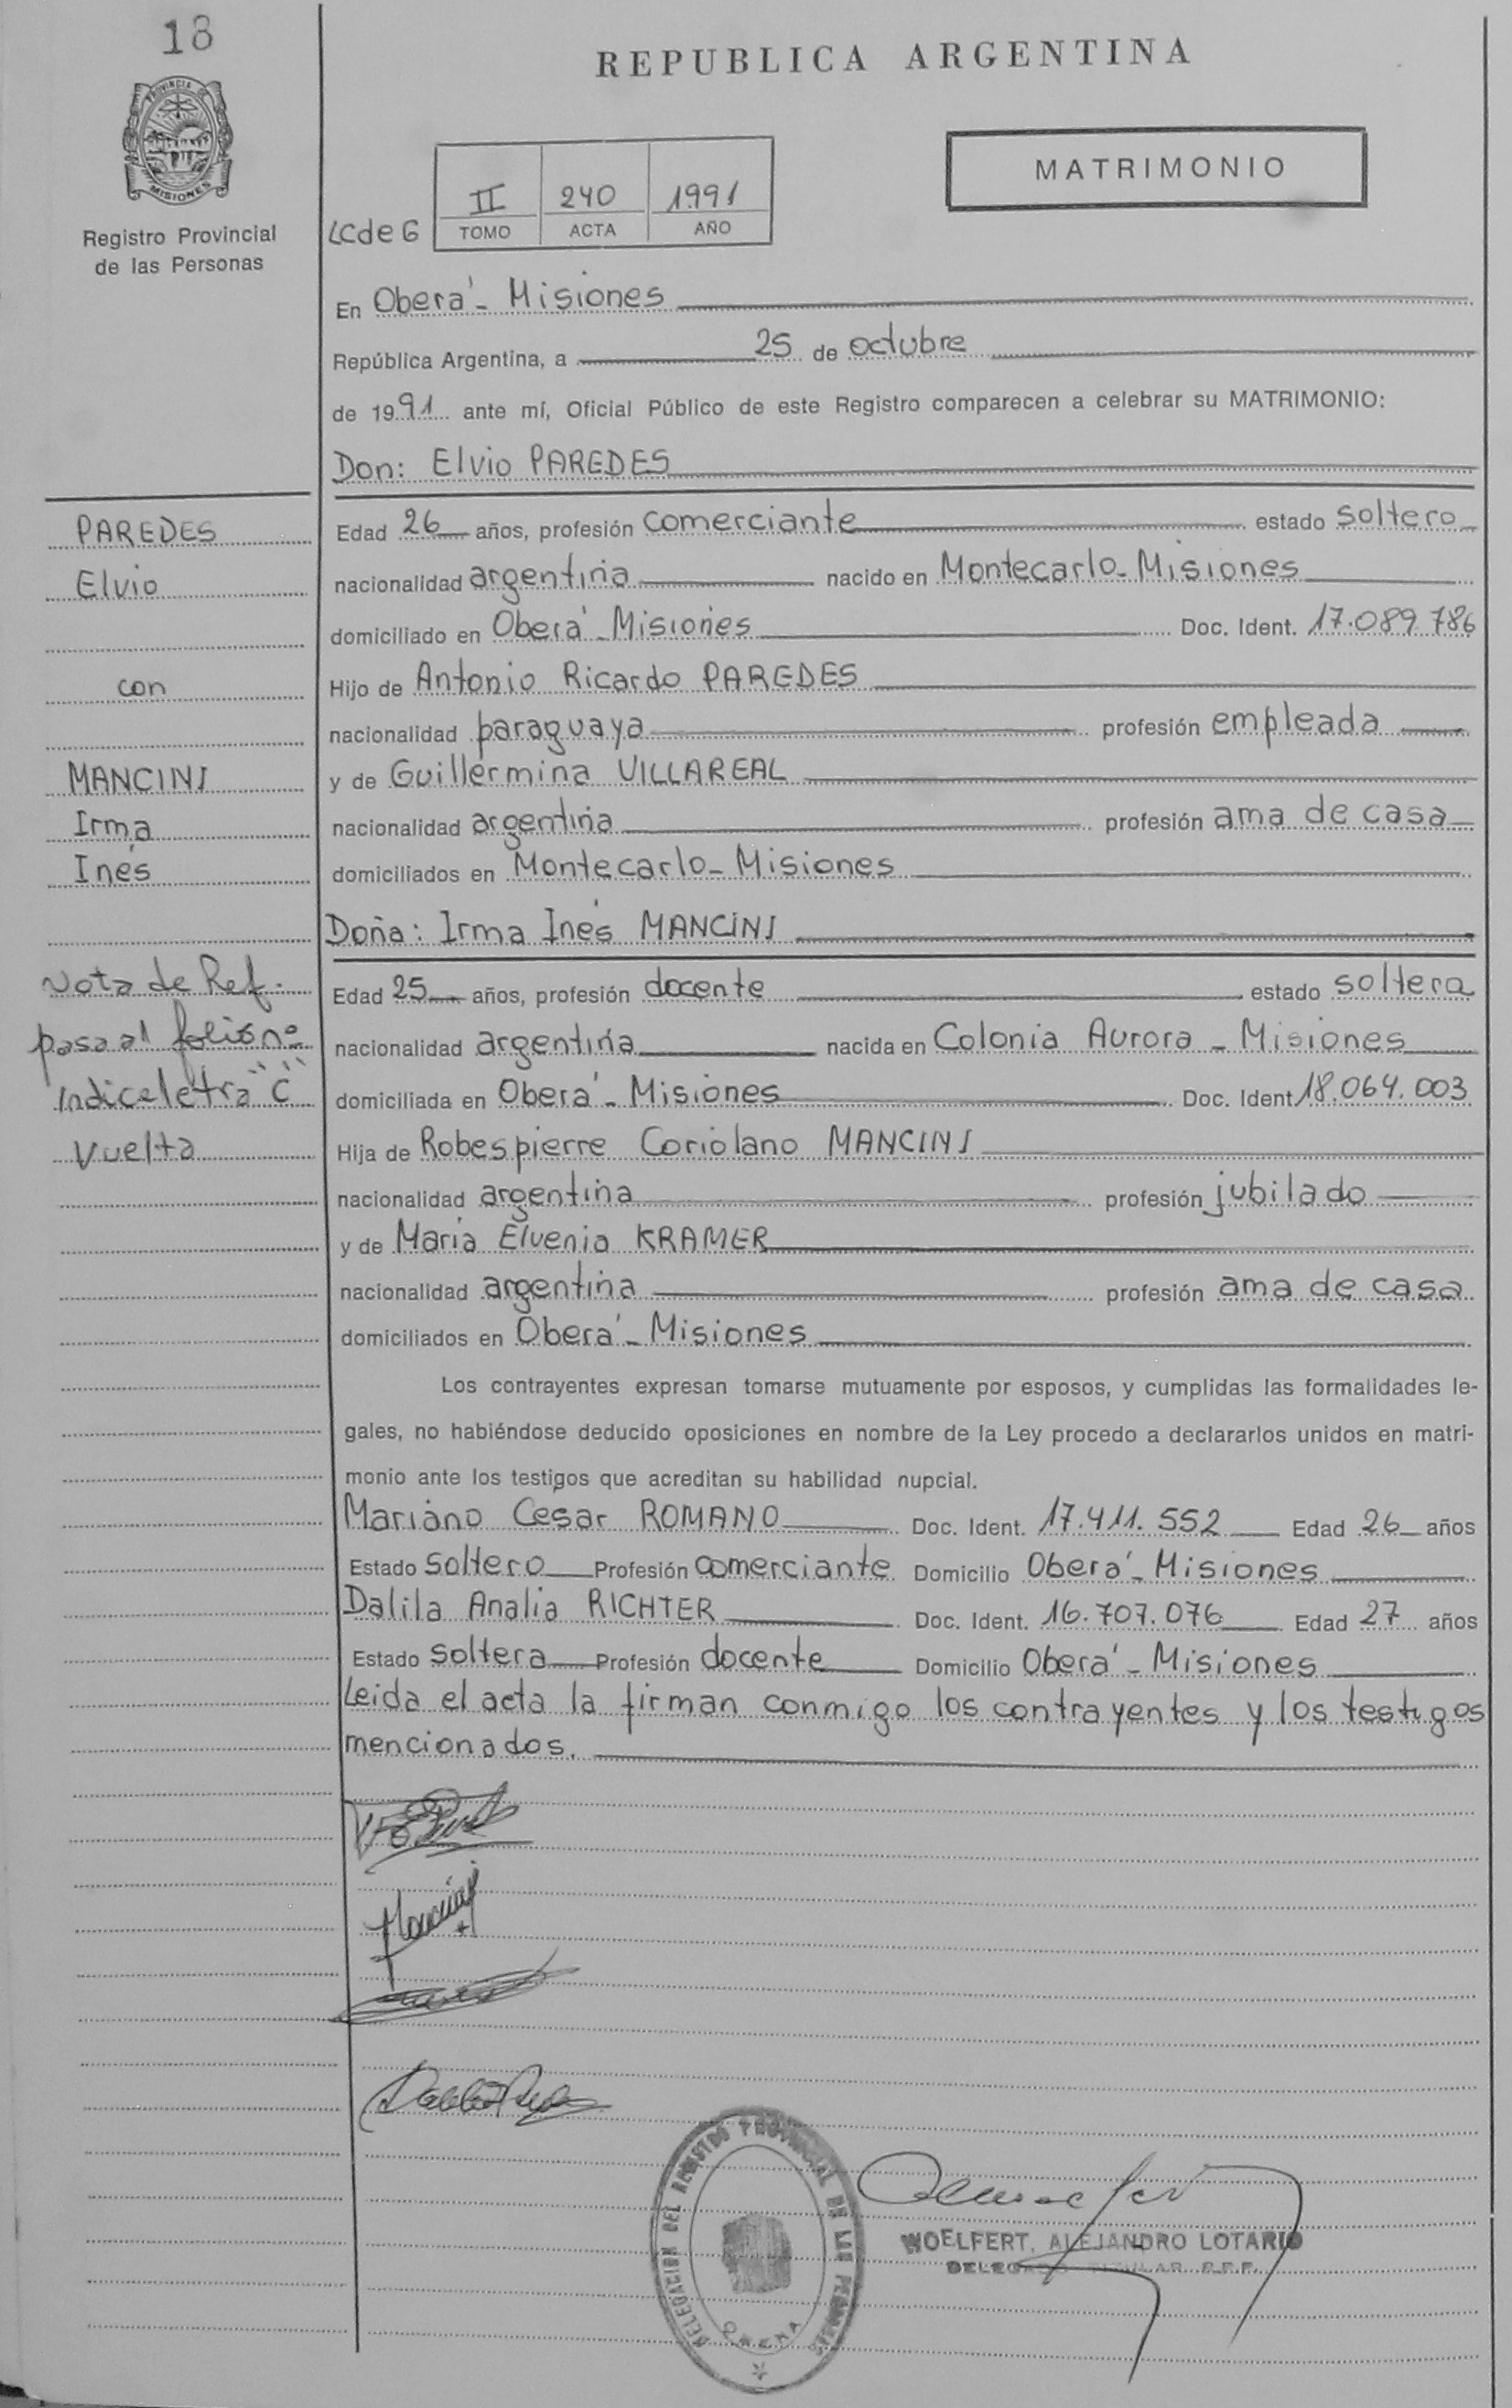 18
REPUBLICA ARGENTINA
PROVINCIA DE
MISIONES
Registro Provincial
de las Personas
LC de G
II 240 1991
TOMO ACTA AÑO
MATRIMONIO
En Oberá - Misiones
República Argentina, a 25 de octubre
de 1991 ante mí, Oficial Público de este Registro comparecen a celebrar su MATRIMONIO:
Don: Elvio PAREDES
PAREDES
Elvio
con
MANCINI
Irma
Inés
Nota de Ref.
pasa al folio nº
Indice letra "C"
Vuelta
Edad 26 años, profesión comerciante estado soltero
nacionalidad argentina nacido en Montecarlo - Misiones
domiciliado en Oberá - Misiones Doc. Ident. 17.089.786
Hijo de Antonio Ricardo PAREDES
nacionalidad paraguaya profesión empleada
y de Guillermina VILLAREAL
nacionalidad argentina profesión ama de casa
domiciliados en Montecarlo - Misiones
Doña: Irma Inés MANCINI
Edad 25 años, profesión docente estado soltera
nacionalidad argentina nacida en Colonia Aurora - Misiones
domiciliada en Oberá - Misiones Doc. Ident 18.064.003
Hija de Robespierre Coriolano MANCINI
nacionalidad argentina profesión jubilado
y de Maria Elvenia KRAMER
nacionalidad argentina profesión ama de casa
domiciliados en Oberá - Misiones
Los contrayentes expresan tomarse mutuamente por esposos, y cumplidas las formalidades le-
gales, no habiéndose deducido oposiciones en nombre de la Ley procedo a declararlos unidos en matri-
monio ante los testigos que acreditan su habilidad nupcial.
Mariano Cesar ROMANO Doc. Ident. 17.411.552 Edad 26 años
Estado soltero Profesión comerciante Domicilio Oberá - Misiones
Dalila Analia RICHTER Doc. Ident. 16.707.076 Edad 27 años
Estado soltera Profesión docente Domicilio Oberá - Misiones
Leida el acta la firman conmigo los contrayentes y los testigos
mencionados.
DELEGACION DEL REGISTRO PROVINCIAL DE LAS PERSONAS
WOELFERT, ALEJANDRO LOTARIO